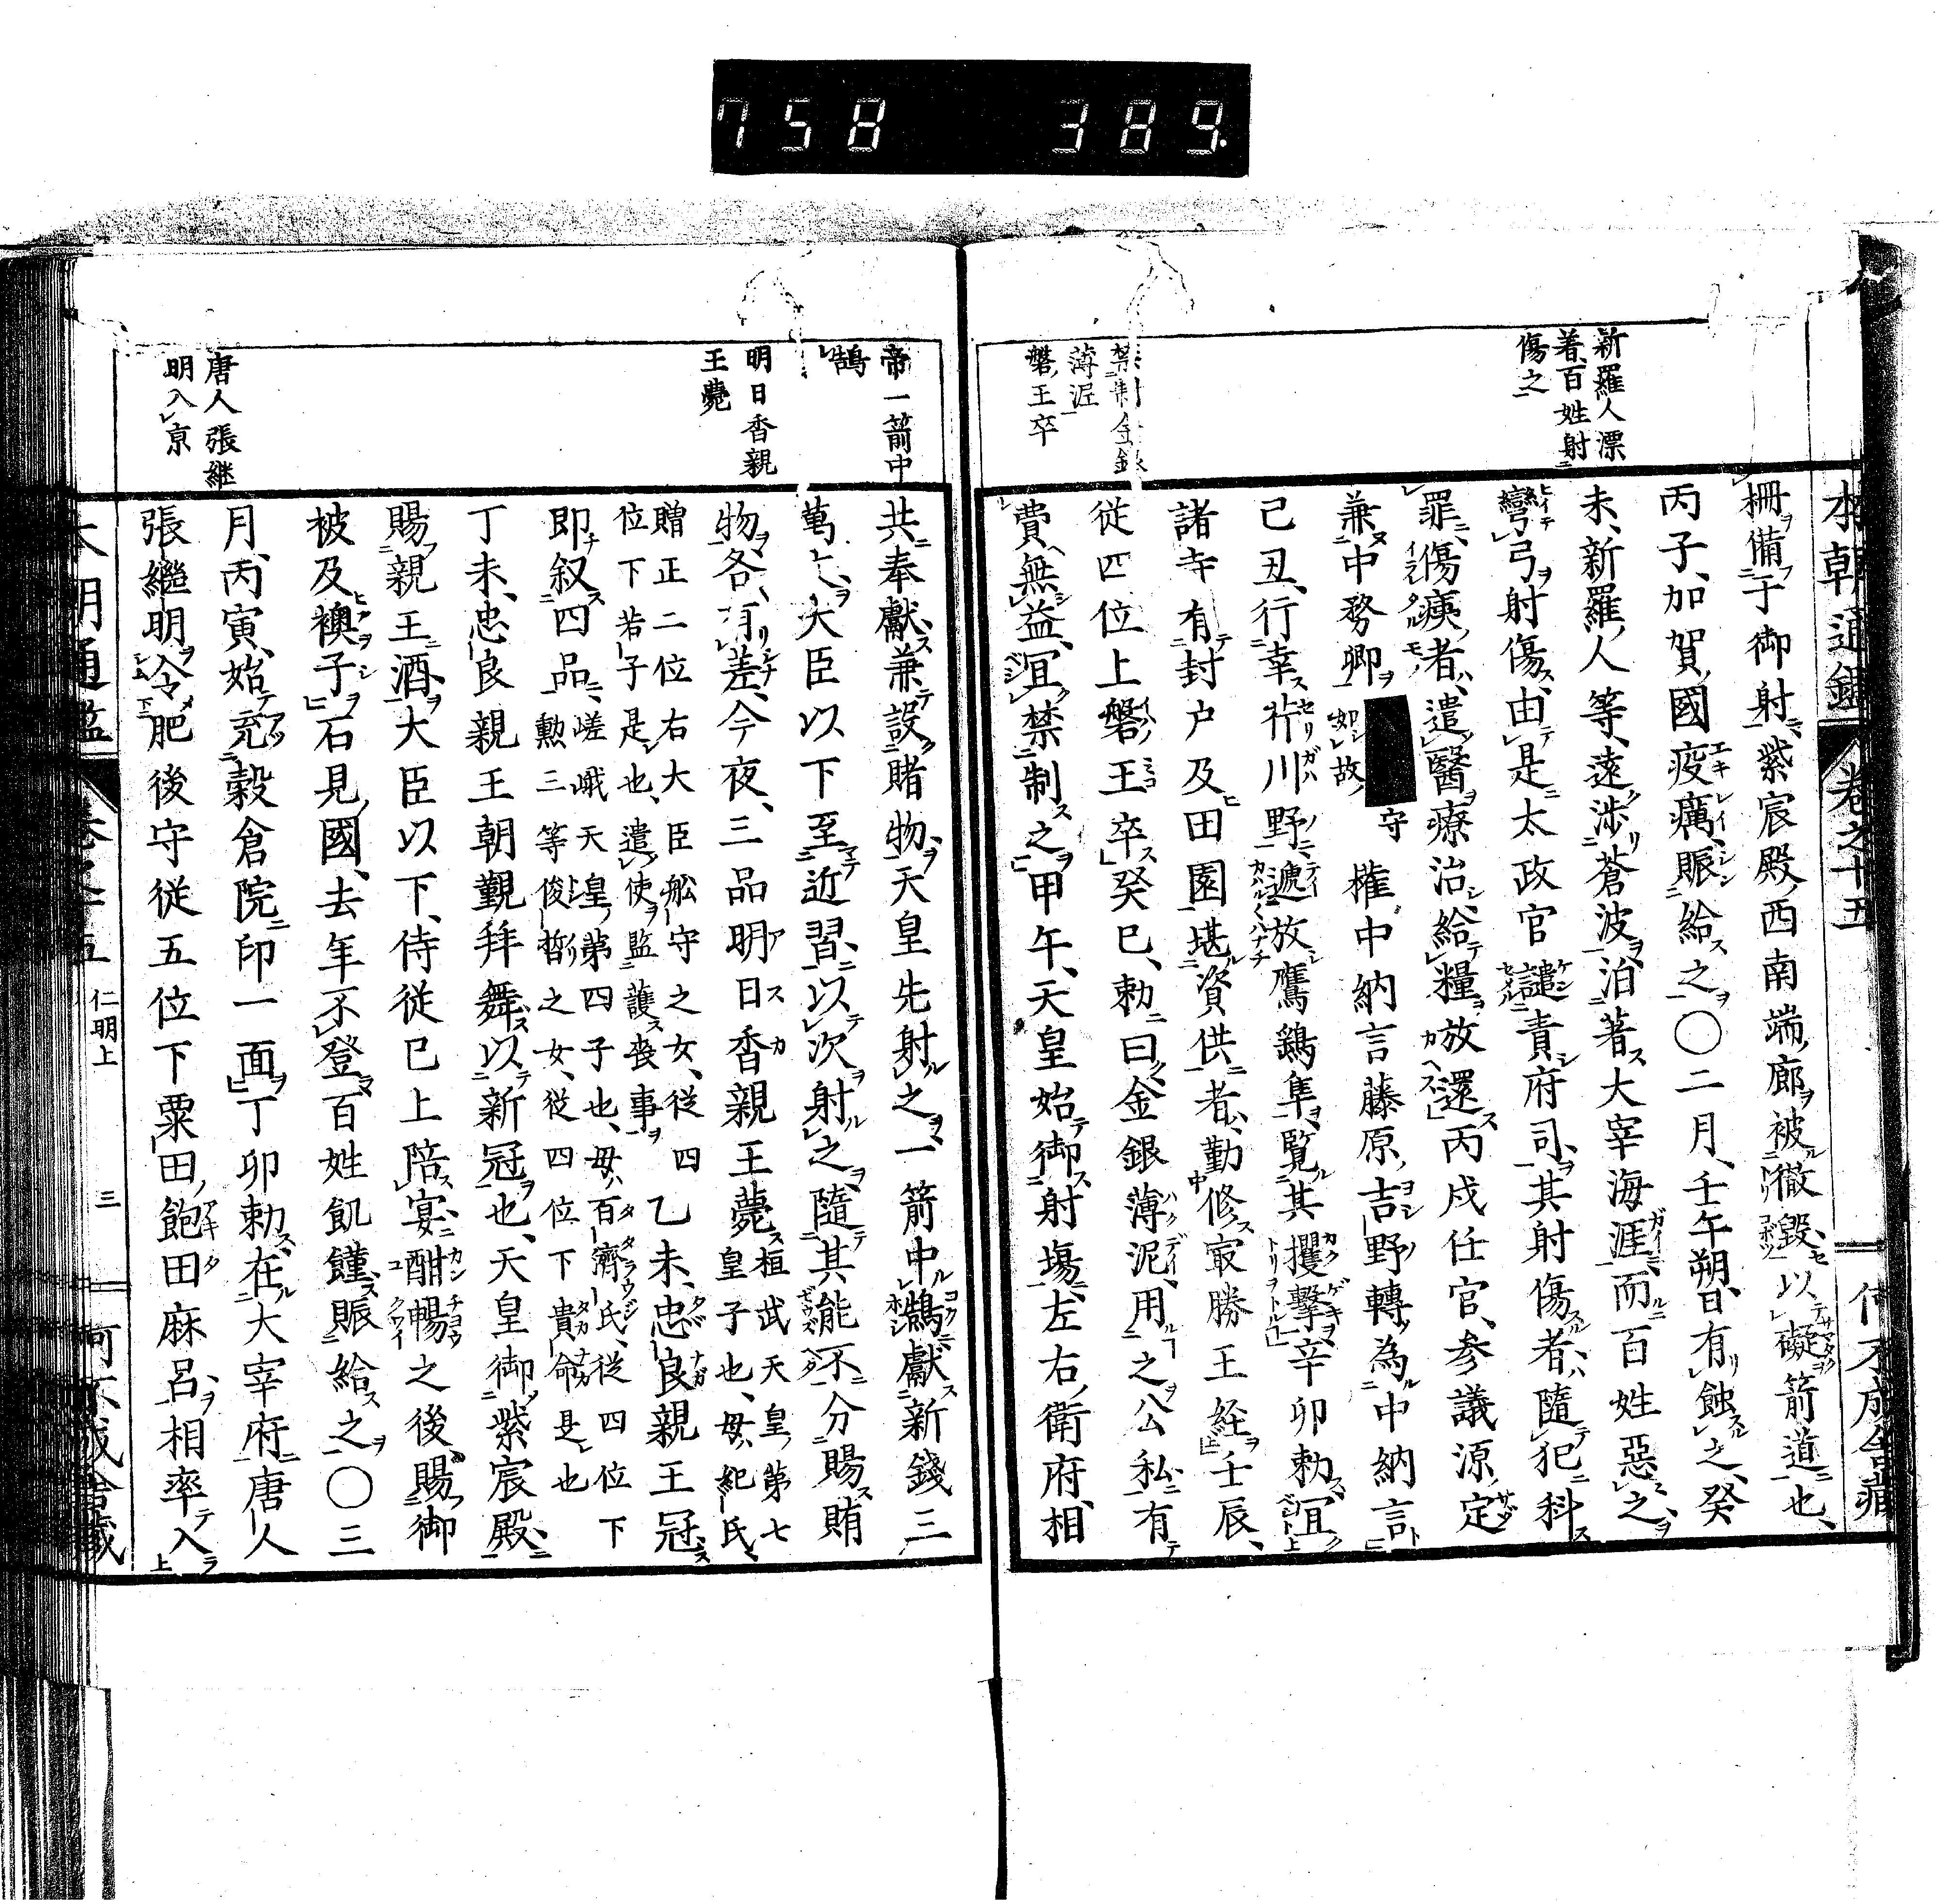 758 389
新羅人漂
著百姓射
傷之
禁制金銀
薄泥
磐王卒
柵備于御射紫宸殿西南端廊被徹毀以礙箭道也
丙子加賀國疫癘賑給之〇二月壬午朔日有蝕之癸
未新羅人等遠涉蒼波泊著大宰海涯而百姓惡之
彎弓射傷由是太政官譴責府司其射傷者隨犯科
罪傷痍者遣醫療治給糧放還丙戌任官参議源定
兼中務卿如故守權中納言藤原吉野轉為中納言
己丑行幸芹川野遞放鷹鷂隼覽其攫擊辛卯勅宜
諸寺有封戸及田園堪資供者勤修㝡勝王経壬辰
従四位上磐王卒癸巳勅曰金銀薄泥用之公私有
費無益宜禁制之甲午天皇始御射場左右衛府相
帝一箭中
鵠
明日香親
王薨
唐人張継
明入京
共奉獻兼設賭物天皇先射之一箭中鵠獻新錢三
萬大臣以下至近習以次射之隨其能不分賜賄
物各有差今夜三品明日香親王薨桓武天皇第七
皇子也母紀氏
贈正二位右大臣舩守之女従四
位下若子是也遣使監護喪事乙未忠良親王冠
即叙四品嵯峨天皇第四子也母百濟氏従四位下
勲三等俊哲之女従四位下貴命是也
丁未忠良親王朝覲拜舞以新冠也天皇御紫宸殿
賜親王酒大臣以下侍従已上陪宴酣暢之後賜御
被及襖子石見國去年不登百姓飢饉賑給之〇三
月丙寅始充穀倉院印一面丁卯勅在大宰府唐人
張繼明令肥後守従五位下粟田飽田麻呂相率入
仁明上
三